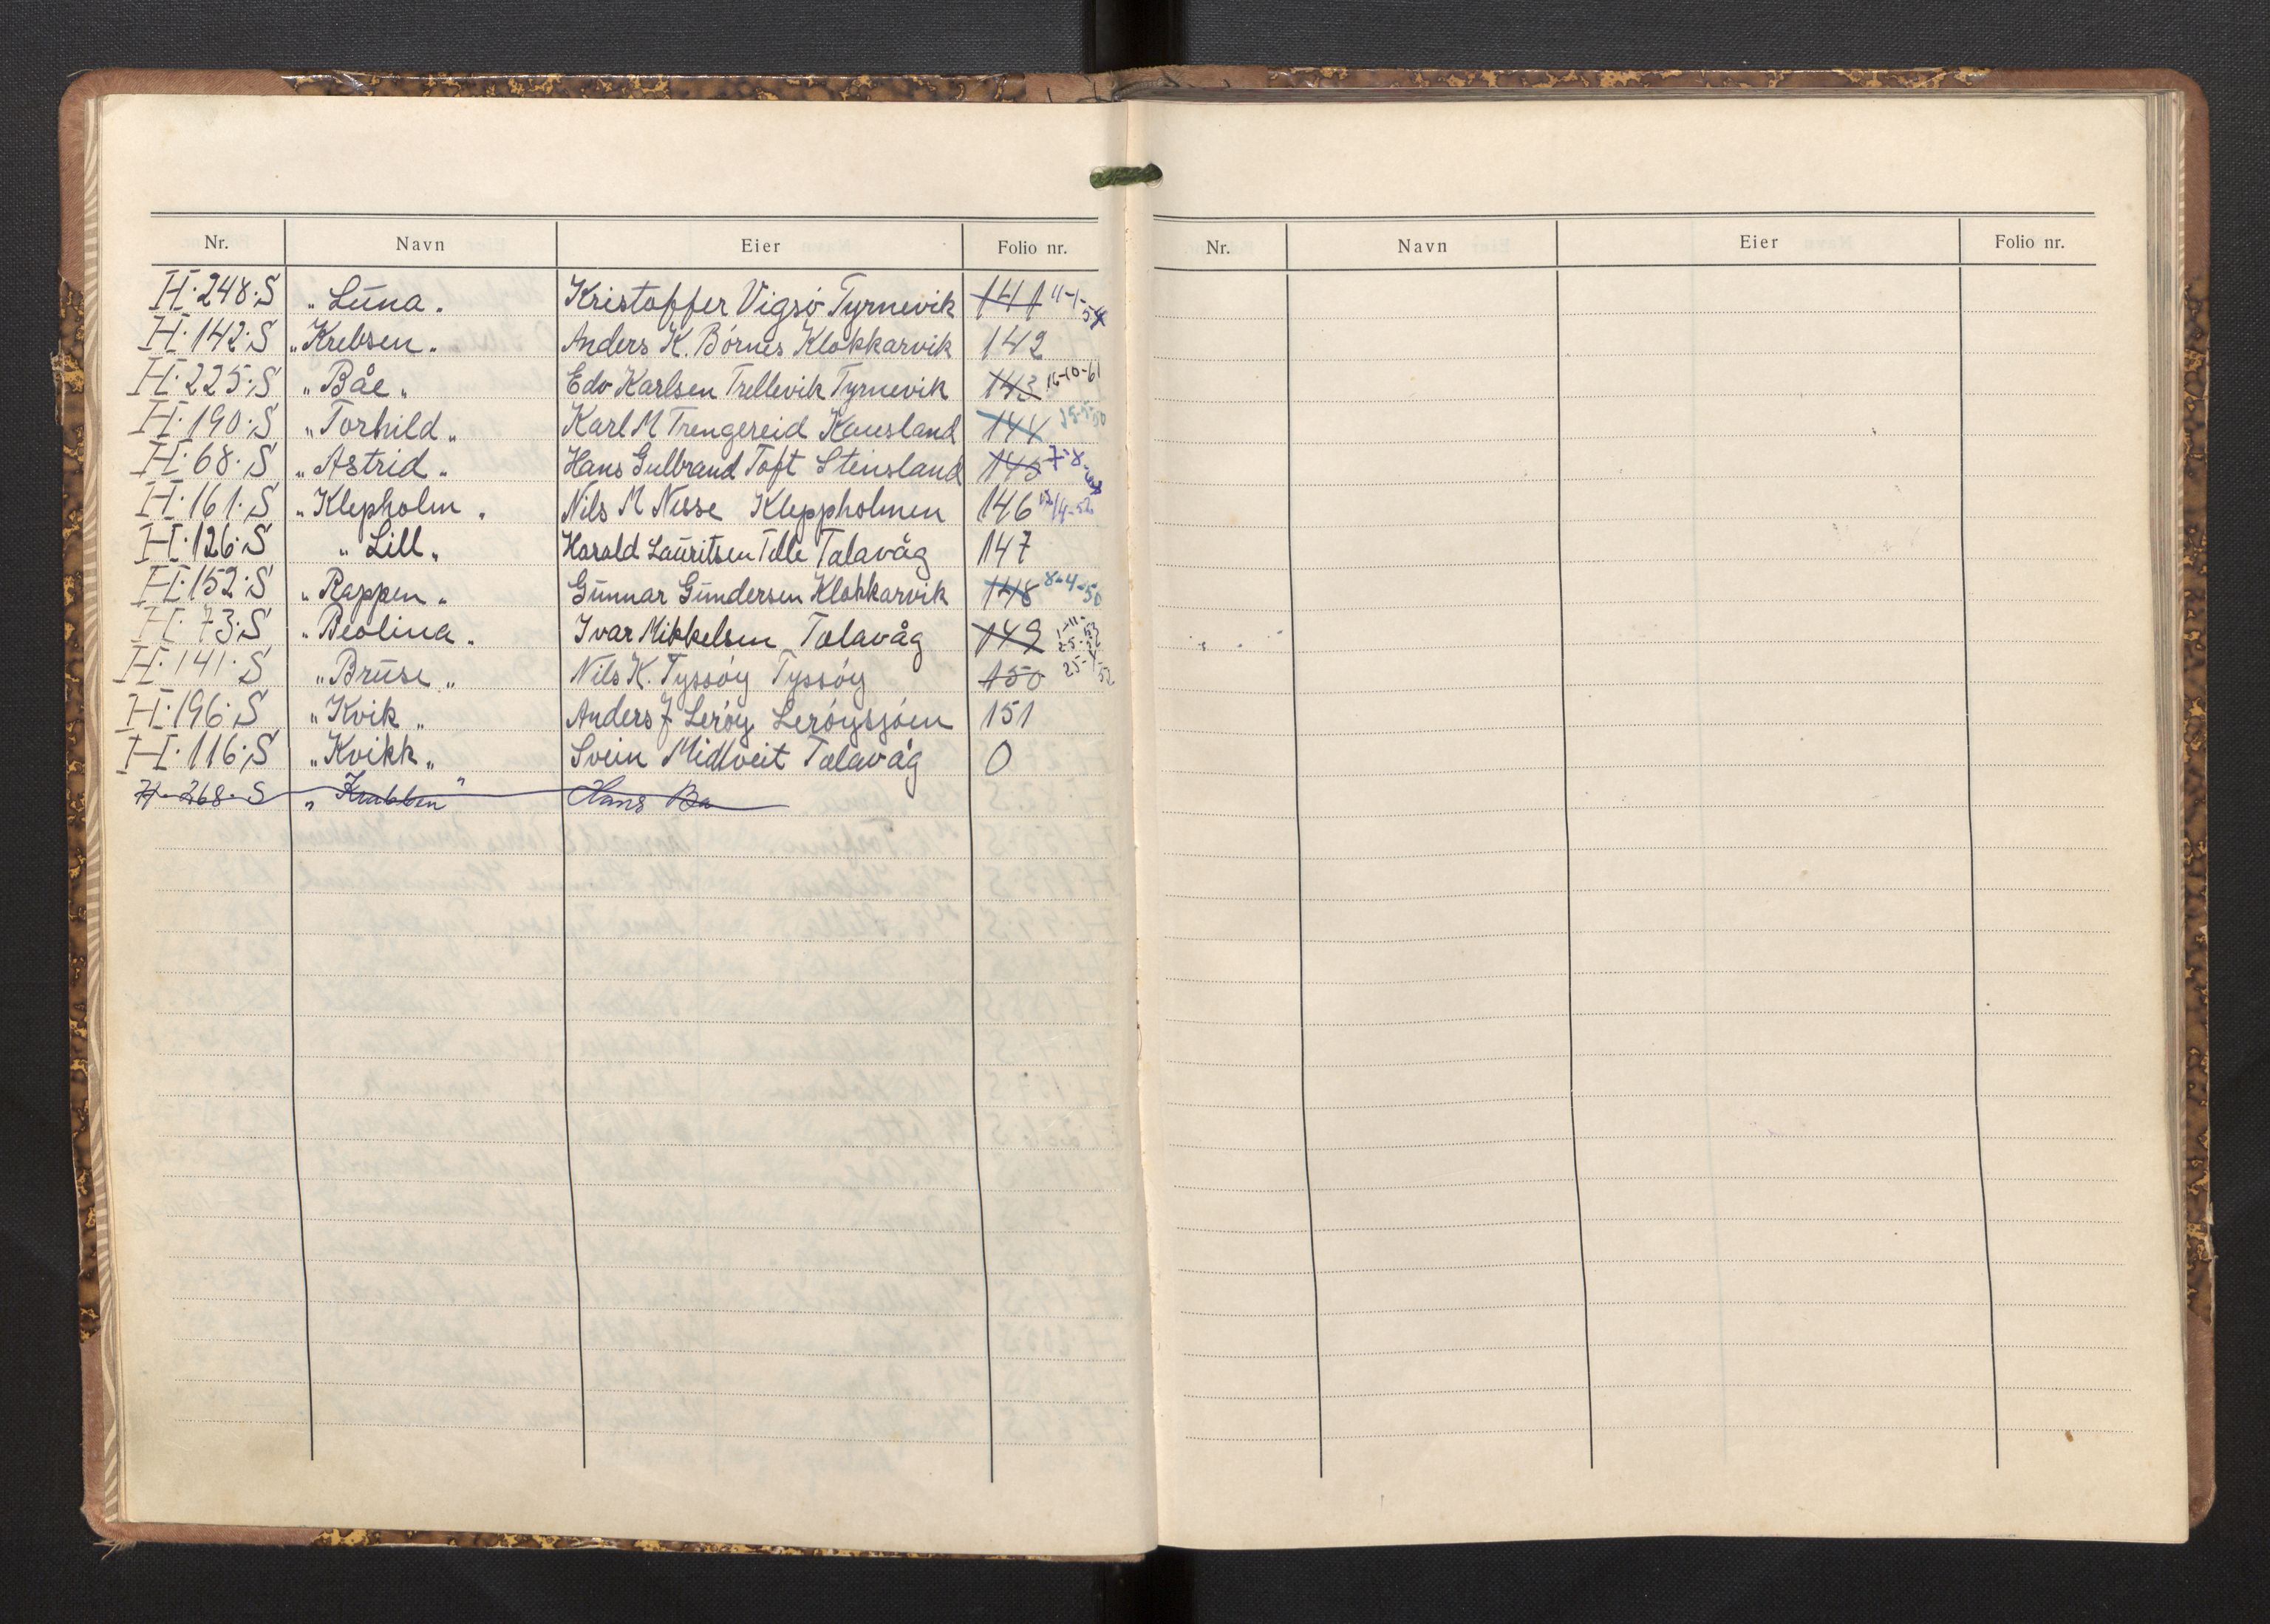 Nr. Navn Eier Folio nr.
H.248.S „Luna. Kristoffer Vigsø Tyrnevik 141 4-1-54
H.142.S „Krebsen„ Anders K. Børnes Klokkarvik 142
H.225.S „Båe„ Edv Karlsen Trellevik Tyrnevik 143 16-10-61
H.190.S „Torhild„ Karl M Trengereid Kausland 144
H.68.S „Astrid„ Hans Gulbrand Toft Steinsland 145 7-8-
H.161.S „Klepholm„ Nils M Nesse Kleppholmen 146
H.126.S „Lill„ Harald Lauritsen Telle Talavåg 147
H.152.S „Rappen„ Gunnar Gundersen Klokkarvik 148 8-4-50
H.73.S „Beolina„ Ivar Mikkelsen Tælavåg 149 1-11-53
H.141.S „Bruse„ Nils K. Tyssøy Tyssøy 150
H.196.S „Kvik„ Anders J Lerøy Lerøysjøen 151
H.116.S „Kvikk„ Svein Midtveit Tælavåg 0
H.268.S „Krabben" Hans Ba
Nr. Navn Eier Folio nr.